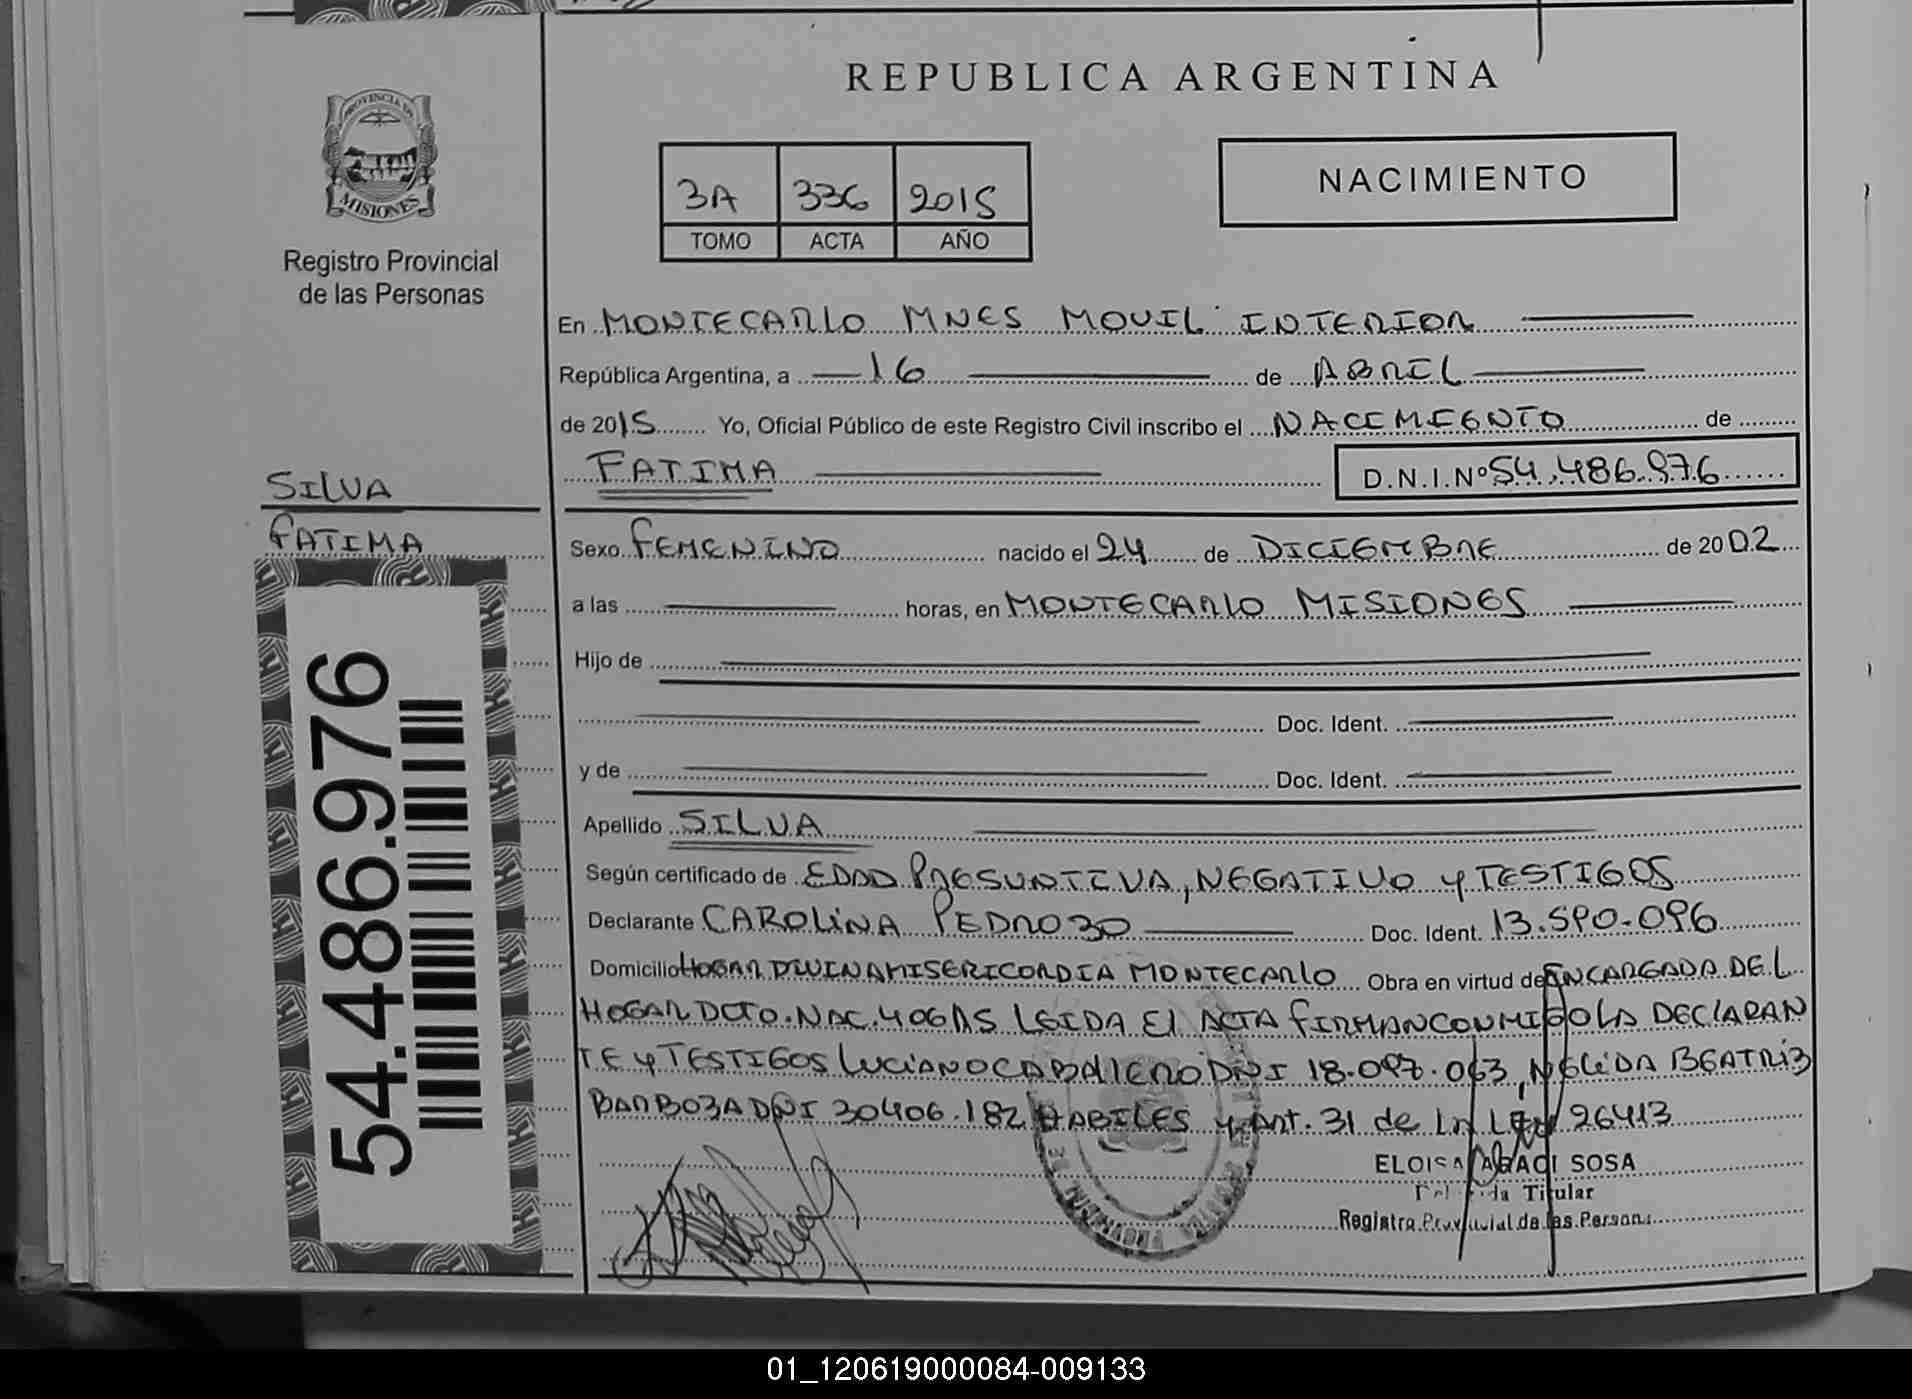 REPUBLICA ARGENTINA
PROVINCIA DE
MISIONES
Registro Provincial
de las Personas
3A 336 2015
TOMO ACTA AÑO
NACIMIENTO
En MONTECARLO MNES MOVIL INTERIOR
República Argentina, a 16 de ABRIL
de 2015 Yo, Oficial Público de este Registro Civil inscribo el NACIMIENTO de
FATIMA D.N.I.Nº 54.486.976
SILVA
FATIMA
54.486.976
Sexo FEMENINO nacido el 24 de DICIEMBRE de 2002
a las horas, en MONTECARLO MISIONES
Hijo de
Doc. Ident.
y de Doc. Ident.
Apellido SILVA
Según certificado de EDAD PRESUNTIVA, NEGATIVO y TESTIGOS
Declarante CAROLINA PEDROZO Doc. Ident. 13.590.096
Domicilio HOGAR DIVINA MISERICORDIA MONTECARLO Obra en virtud de ENCARGADA DEL
HOGAR DCTO. NAC. 406/15 LEIDA El ACTA FIRMAN CONMIGO LA DECLARAN
TE y TESTIGOS LUCIANO CABALLERO DNI 18.097.063, NELIDA BEATRIZ
BARBOZA DNI 30406.182 HABILES y ART. 31 de LA LEY 26413
ELOISA SOSA
Titular
Registro Provincial de las Personas
01_120619000084-009133